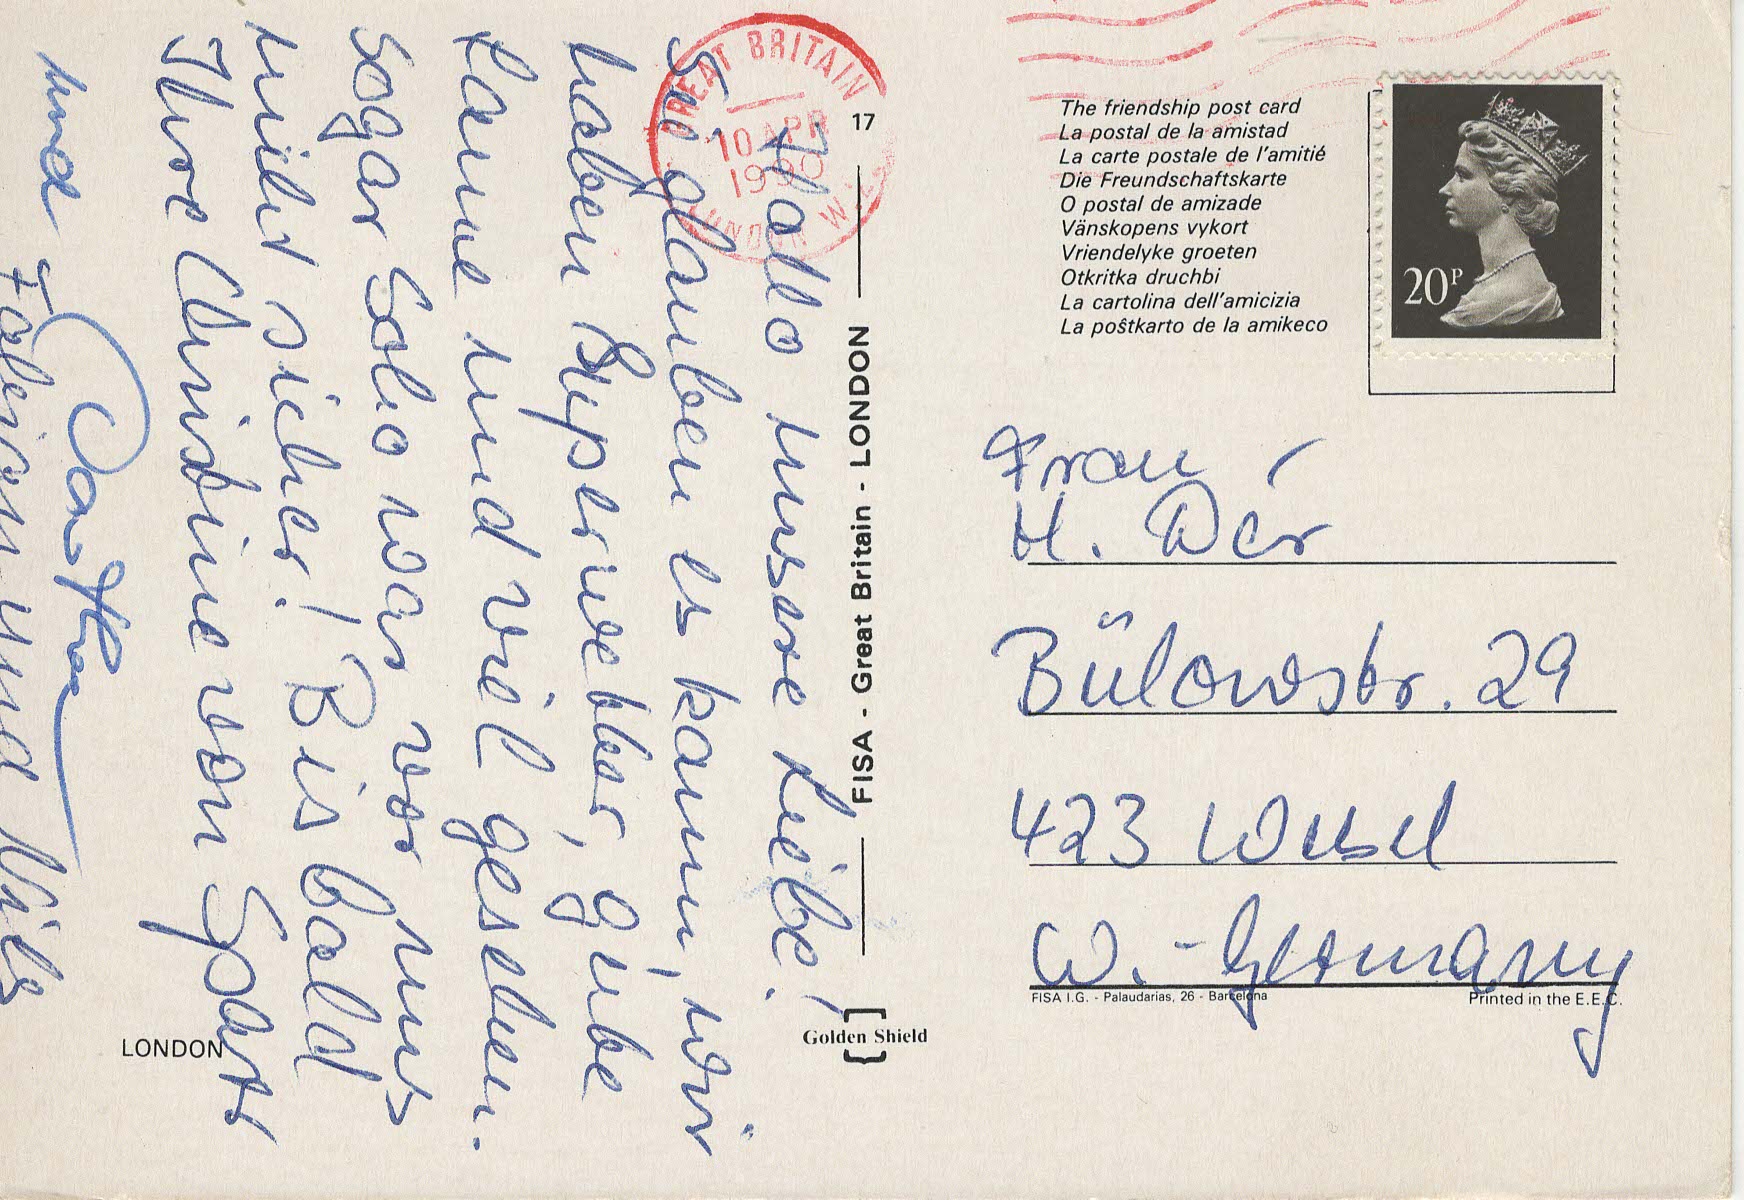 GREAT BRITAIN
10 APR
LONDON W.
Hallo unsere Liebe!
Sie glauben es kaum, wir
haben Superwetter, gute
Laune und viel gesehen.
Sogar Soho war vor uns
nicht sicher! Bis bald
Ihre Christine von
und
Fabian und Nils
LONDON
17
FISA - Great Britain - LONDON
Golden Shield
The friendship post card
La postal de la amistad
La carte postale de l'amitié
Die Freundschaftskarte
O postal de amizade
Vänskopens vykort
Vriendelyke groeten
Otkritka druchbi
La cartolina dell'amicizia
La poŝtkarto de la amikeco
20P
Frau
H. Dér
Bülowstr. 29
423 Wesel
W.-Germany
FISA I.G. - Palaudarias, 26 - Barcelona
Printed in the E.E.C.